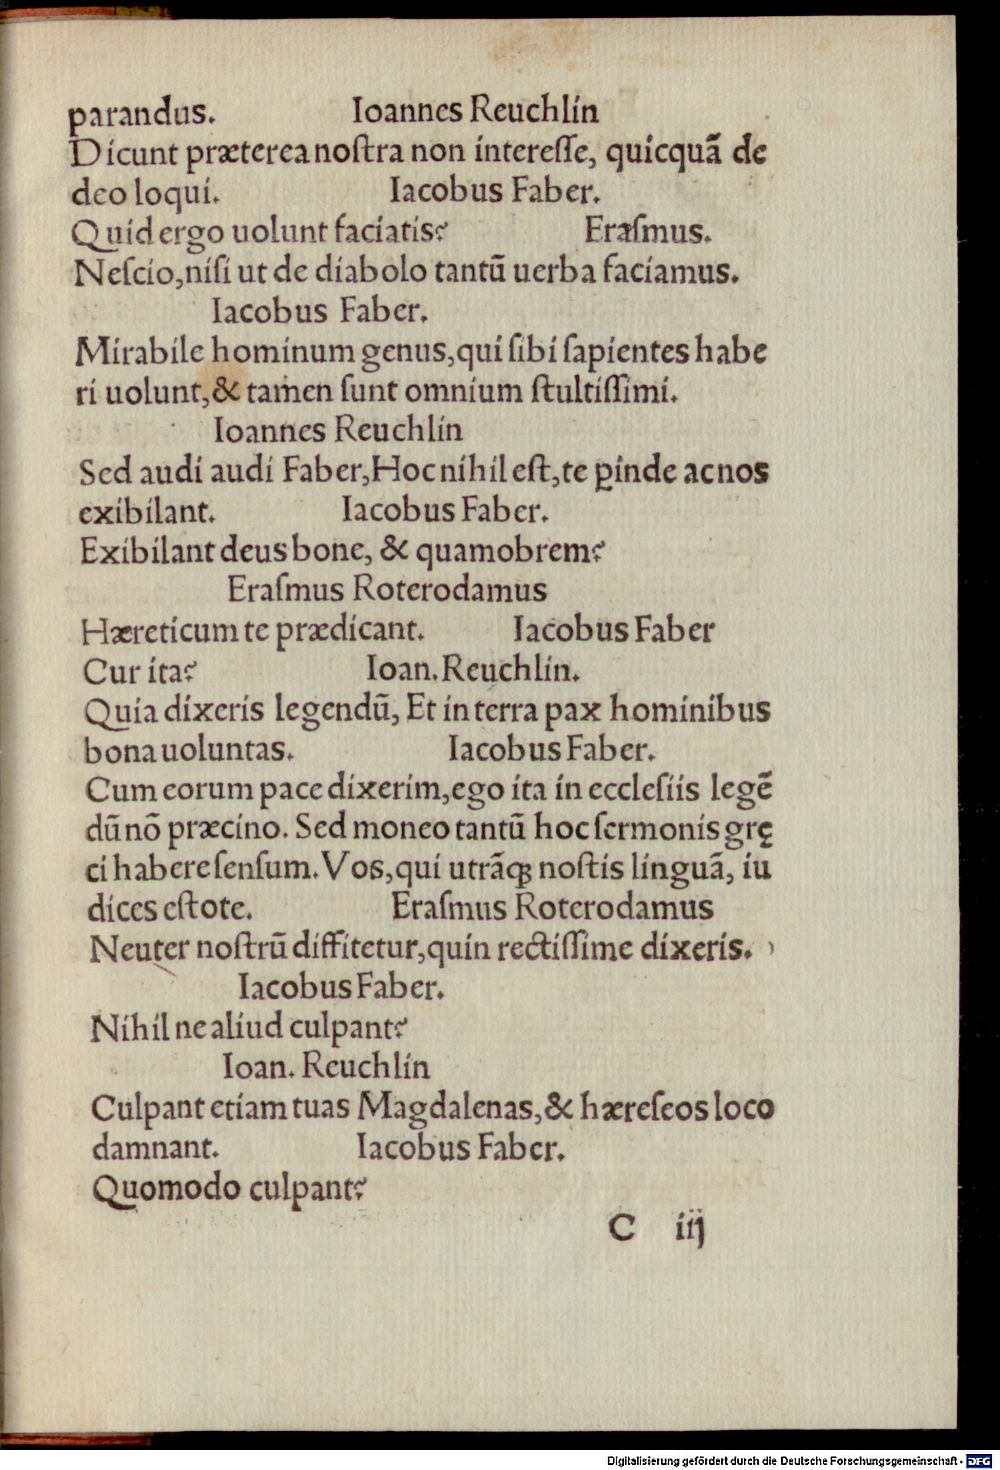 parandus. Ioannes Reuchlin
Dicunt præterea noſtra non intereſſe, quicquã de
deo loqui. Iacobus Faber.
Quid ergo uolunt faciatis? Eraſmus.
Neſcio,niſi ut de diabolo tantũ uerba faciamus.
Iacobus Faber.
Mirabile hominum genus,qui ſibi ſapientes habe
ri uolunt,& tamen ſunt omnium ſtultiſſimi.
Ioannes Reuchlin
Sed audi audi Faber,Hoc nihil eſt,te ꝑinde ac nos
exibilant. Iacobus Faber.
Exibilant deus bone, & quamobrem?
Eraſmus Roterodamus
Hæreticum te prædicant. Iacobus Faber
Cur ita? Ioan. Reuchlin.
Quia dixeris legendũ, Et in terra pax hominibus
bona uoluntas. Iacobus Faber.
Cum eorum pace dixerim,ego ita in eccleſiis legẽ
dũ nõ præcino. Sed moneo tantũ hoc ſermonis grę
ci habere ſenſum. Vos,qui utrãqꝫ noſtis linguã, iu
dices eſtote. Eraſmus Roterodamus
Neuter noſtrũ diffitetur,quin rectiſſime dixeris.
Iacobus Faber.
Nihil ne aliud culpant?
Ioan. Reuchlin
Culpant etiam tuas Magdalenas,& hæreſeos loco
damnant. Iacobus Faber.
Quomodo culpant?
C iij
Digitalisierung gefördert durch die Deutsche Forschungsgemeinschaft - DFG